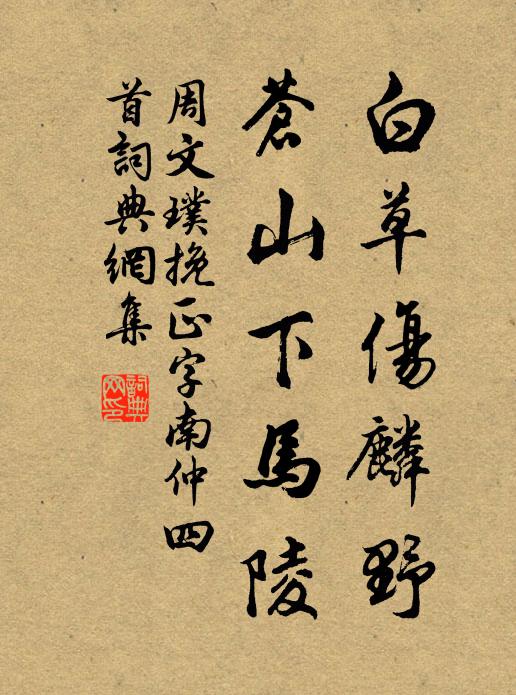 白草傷麟野
蒼山下馬陵
周文璞挽正字南仲四
首詞典網集
詞典網印